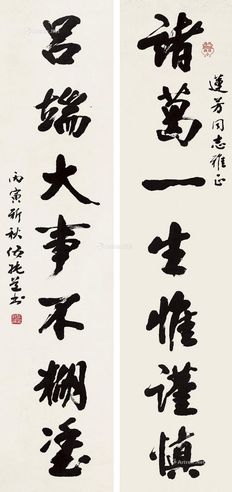 蓮芳同志雅正
諸葛一生惟謹慎
呂端大事不糊塗
丙寅新秋